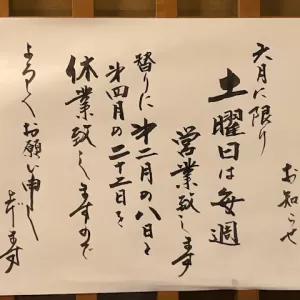 お知らせ
六月に限り
土曜日は毎週
営業致します
替りに 第二月の八日と
第四月の二十二日を
休業致しますので
よろしくお願い申し上げます